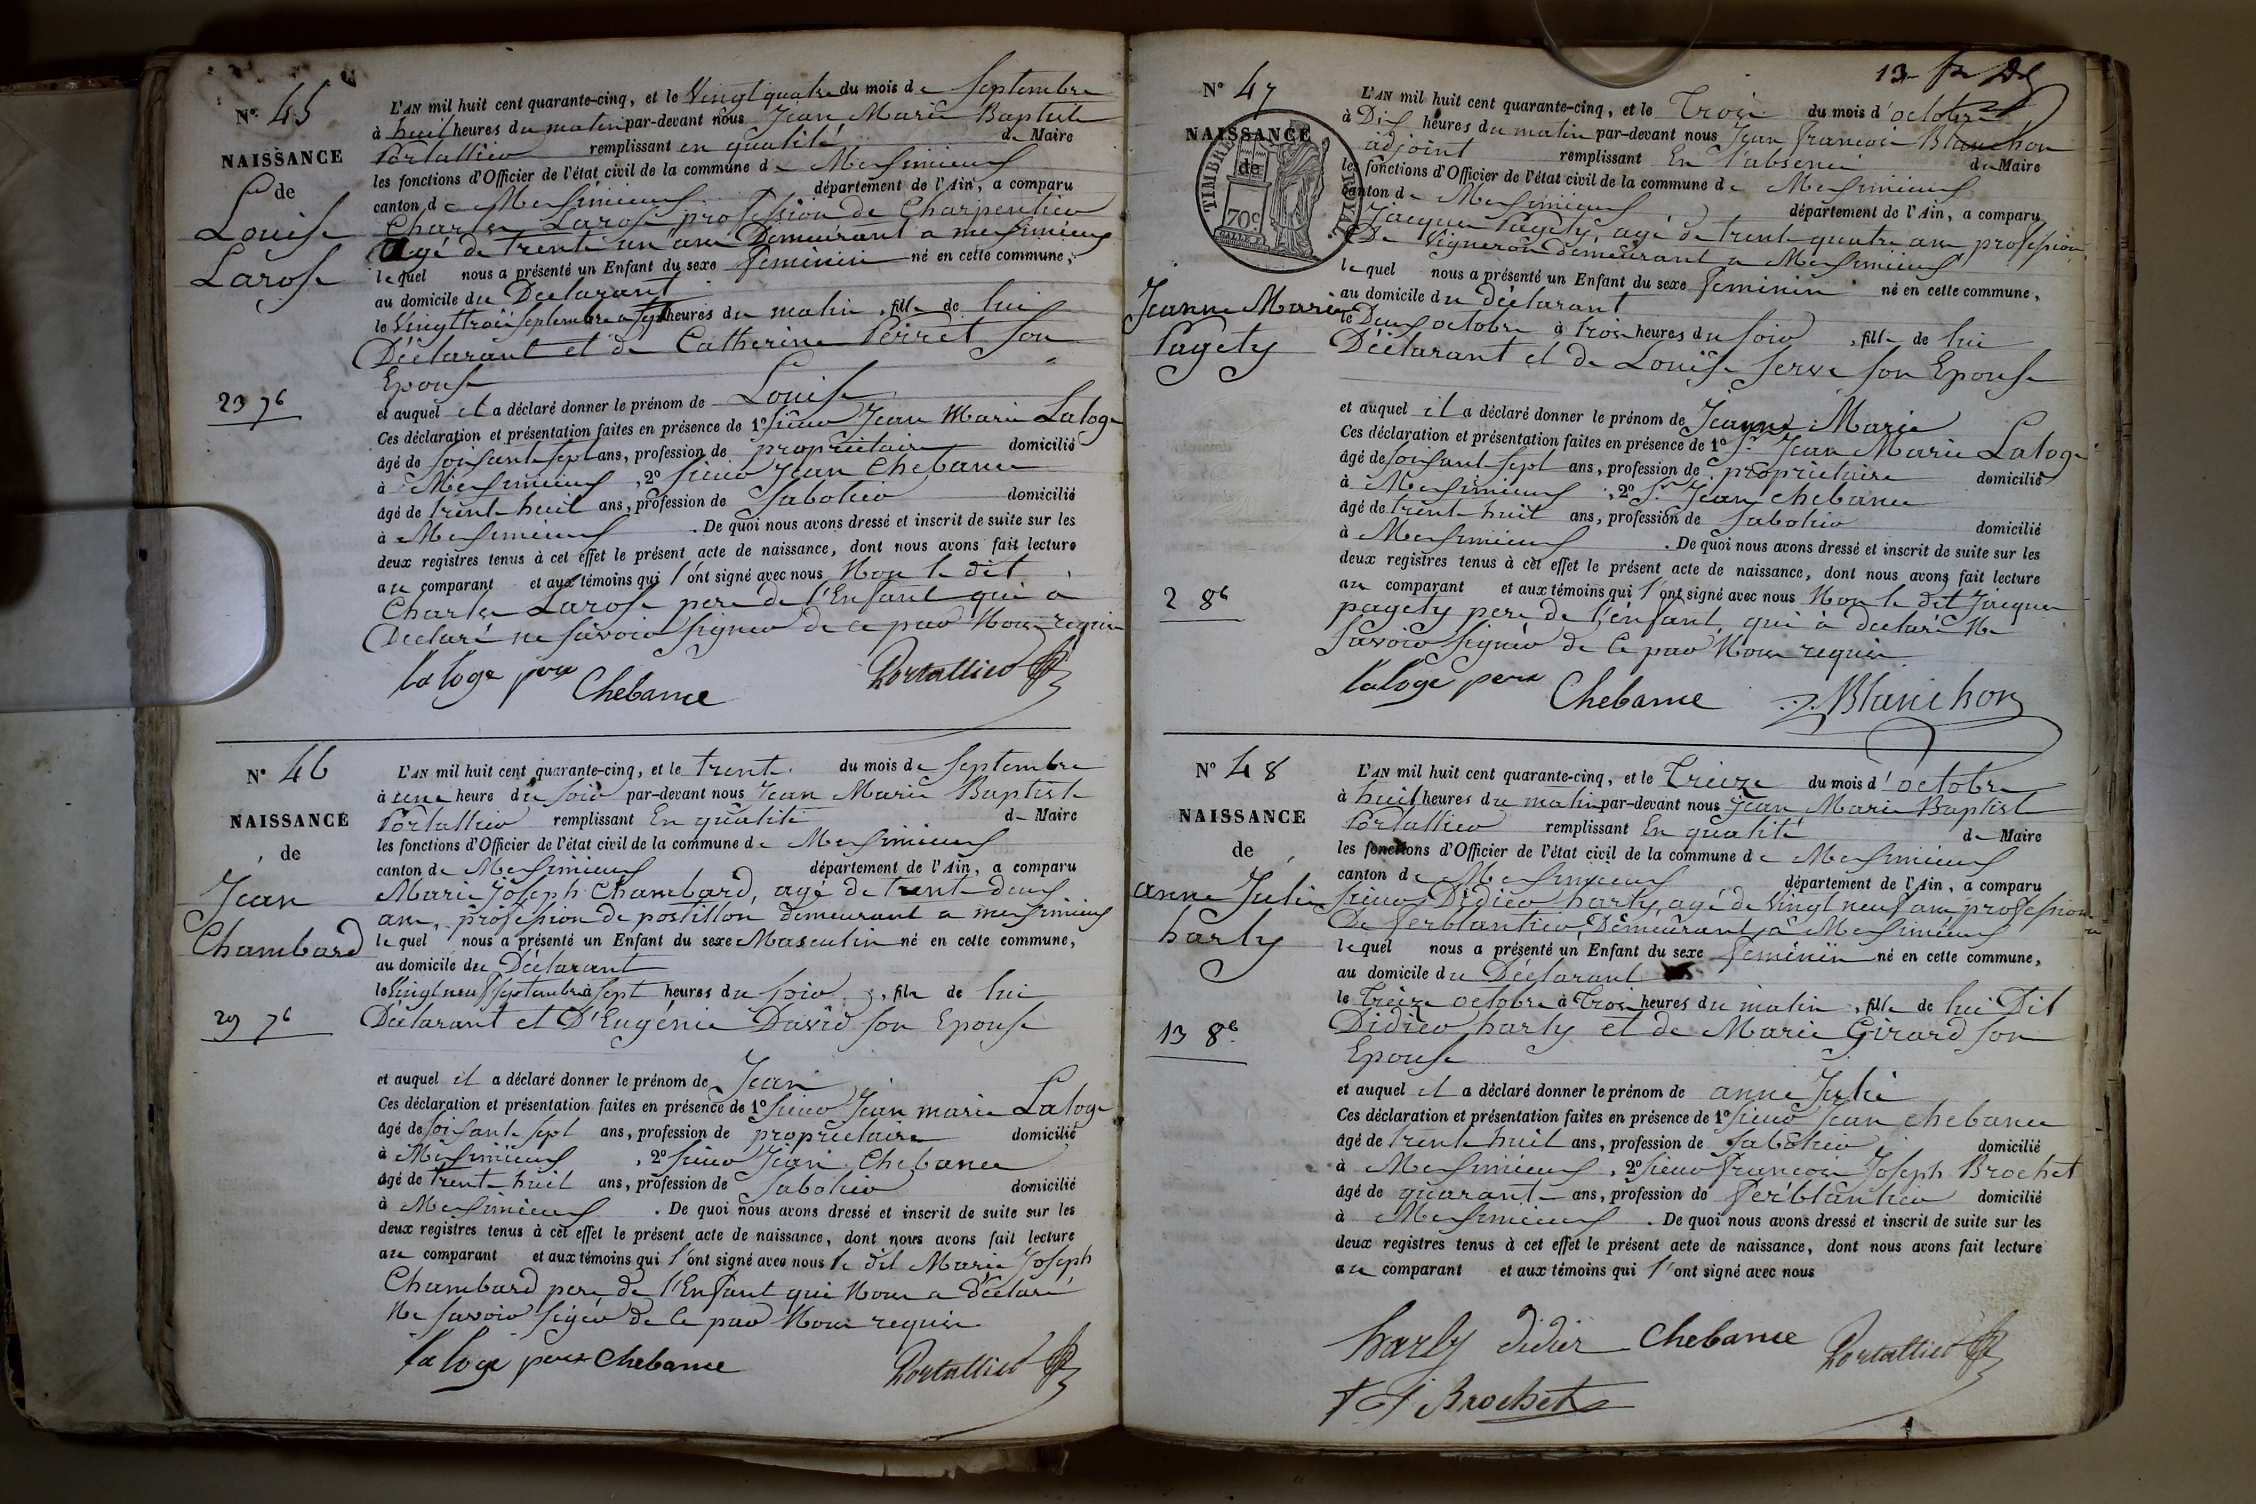 N° 45
NAISSANCE
de
Louise
Larose
23 7b
L'AN mil huit cent quarante-cinq, et le Vingt quatre du mois de Septembre
à huit heures du matin par-devant nous Jean Marie Baptiste
Portallier remplissant en qualité de Maire
les fonctions d'Officier de l'état civil de la commune de Meximieux
canton de Meximieux département de l'Ain, a comparu
Charles Larose profession de Charpentier
agé de trente un ans Demeurant a meximieux
lequel nous a présenté un Enfant du sexe feminin né en cette commune,
au domicile du Déclarant
le Vingt trois septembre a sept heures du matin, fille de lui
Déclarant et de Catherine Perret son
Epouse
et auquel il a déclaré donner le prénom de Louise
Ces déclaration et présentation faites en présence de 1° sieur Jean Marie Laloge
âgé de soixante sept ans, profession de propriétaire domicilié
à Meximieux, 2° sieur Jean Chebance
âgé de trente huit ans, profession de Sabotier domicilié
à Meximieux. De quoi nous avons dressé et inscrit de suite sur les
deux registres tenus à cet effet le présent acte de naissance, dont nous avons fait lecture
au comparant et aux témoins qui l'ont signé avec nous Non le dit
Charles Larose pere de l'Enfant qui a
Declaré ne savoir signer de ce par Nous requis
laloge pere Chebance Portallier
N° 46
NAISSANCE
de
Jean
Chambard
29 7b
L'AN mil huit cent quarante-cinq, et le trente du mois de Septembre
à une heure du soir par-devant nous Jean Marie Baptiste
Portallier remplissant En qualité de Maire
les fonctions d'Officier de l'état civil de la commune de Meximieux
canton de Meximieux département de l'Ain, a comparu
Marie Joseph Chambard, agé de trente deux
ans, profession de postillon demeurant a meximieux
lequel nous a présenté un Enfant du sexe Masculin né en cette commune,
au domicile du Déclarant
le Vingt neuf septembre à sept heures du soir, fils de lui
Déclarant et D'Eugénie David son Epouse
et auquel il a déclaré donner le prénom de Jean
Ces déclaration et présentation faites en présence de 1° sieur Jean marie Laloge
âgé de soixante sept ans, profession de propriétaire domicilié
à Meximieux, 2° sieur Jean Chebance
âgé de trente huit ans, profession de Sabotier domicilié
à Meximieux. De quoi nous avons dressé et inscrit de suite sur les
deux registres tenus à cet effet le présent acte de naissance, dont nous avons fait lecture
au comparant et aux témoins qui l'ont signé avec nous le dit Marie Joseph
Chambard pere de l'Enfant qui Nous a déclaré
Ne savoir sigér de ce par Nous requis
laloge pere Chebance Portallier
13
N° 47
NAISSANCE
de
TIMBRE ROYAL
70c
Jeanne Marie
Pagety
2 8b
L'AN mil huit cent quarante-cinq, et le Trois du mois d'octobre
à Dix heures du matin par-devant nous Jean françois Blanchon
adjoint remplissant En l'absence de Maire
les fonctions d'Officier de l'état civil de la commune de Meximieux
canton de Meximieux département de l'Ain, a comparu
Jacques Pagety, agé de trente quatre ans profession
De Vigneron demeurant a Meximieux
lequel nous a présenté un Enfant du sexe feminin né en cette commune,
au domicile du déclarant
le Deux octobre à trois heures du soir, fille de lui
Déclarant et de Louise Serve son Epouse
et auquel il a déclaré donner le prénom de Jeanne Marie
Ces déclaration et présentation faites en présence de 1° Sr Jean Marie Laloge
âgé de soixante sept ans, profession de propriétaire domicilié
à Meximieux, 2° Sr Jean chebance
âgé de trente huit ans, profession de sabotier domicilié
à Meximieux. De quoi nous avons dressé et inscrit de suite sur les
deux registres tenus à cet effet le présent acte de naissance, dont nous avons fait lecture
au comparant et aux témoins qui l'ont signé avec nous Non le dit Jacques
pagety pere de l'enfant, qui a déclaré Ne
Savoir signér de ce par Nous requis
laloge pere Chebance Blanchon
N° 48
NAISSANCE
de
anne Julie
harly
13 8b
L'AN mil huit cent quarante-cinq, et le Treize du mois d'octobre
à huit heures du matin par-devant nous Jean Marie Baptiste
Portallier remplissant En qualité de Maire
les fonctions d'Officier de l'état civil de la commune de Meximieux
canton de Meximieux département de l'Ain, a comparu
sieur Didier harly, agé de Vingt neuf ans profession
De ferblantier, Demeurant à Meximieux
lequel nous a présenté un Enfant du sexe feminin né en cette commune,
au domicile du Déclarant
le Treize octobre à Trois heures du matin, fille de lui Dit
Didier harly et de Marie Girard son
Epouse
et auquel il a déclaré donner le prénom de anne Julie
Ces déclaration et présentation faites en présence de 1° sieur Jean chebance
âgé de trente huit ans, profession de Sabotier domicilié
à Meximieux, 2° sieur françois Joseph Brochet
âgé de quarante ans, profession de ferblantier domicilié
à Meximieux. De quoi nous avons dressé et inscrit de suite sur les
deux registres tenus à cet effet le présent acte de naissance, dont nous avons fait lecture
au comparant et aux témoins qui l'ont signé avec nous
harly didier Chebance Portallier
Brochet